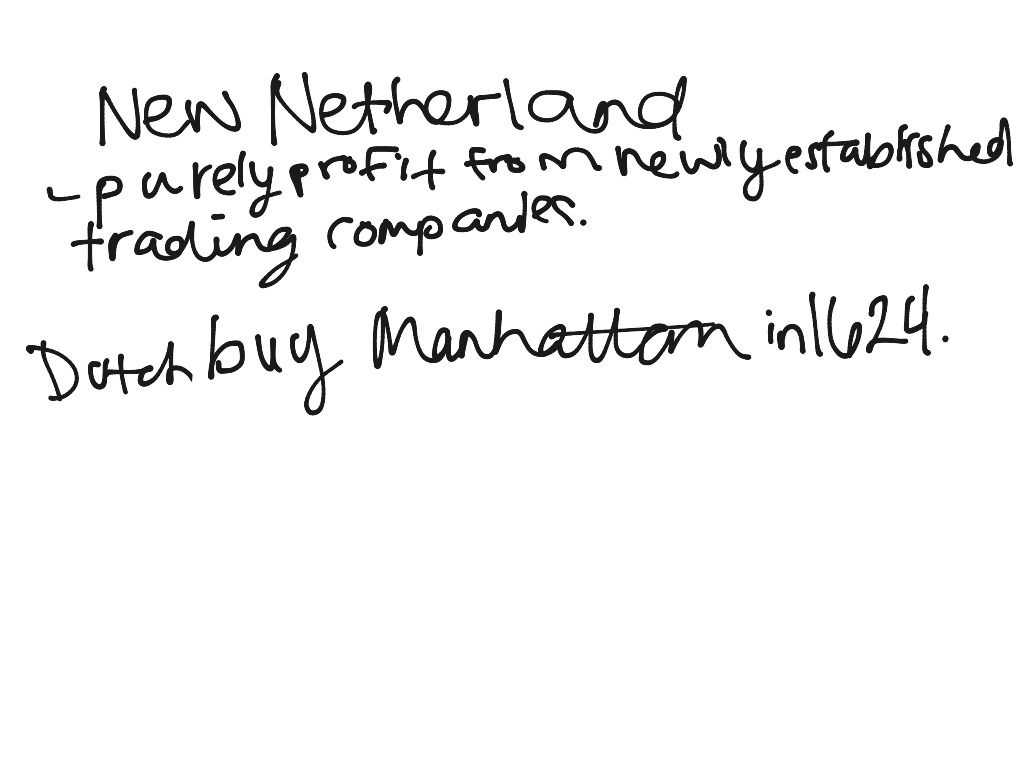 New Netherland
- purely profit from newly established
trading companies.
Dutch buy Manhattan in 1624.